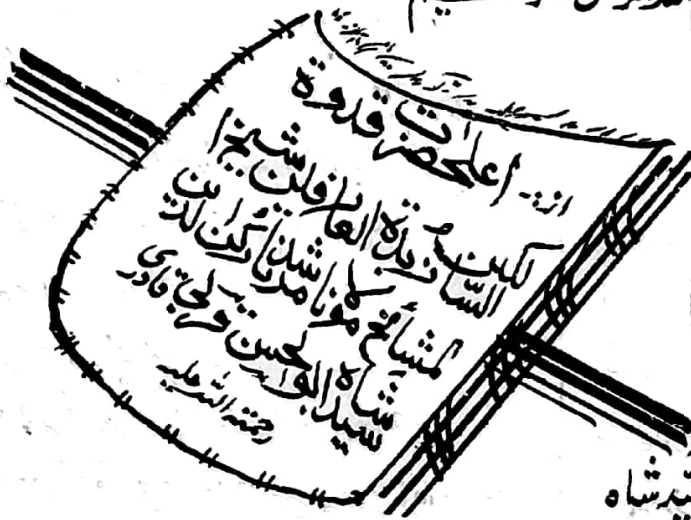 از:- اعلحضرت قدوة
السالکین زبدة العارفین شیخ ا
لمشائخ مولانا مرشدنا رکن الدین
سید شاہ ابوالحسن قربی قادری
رحمتہ اللہ علیہ
سید شاہ